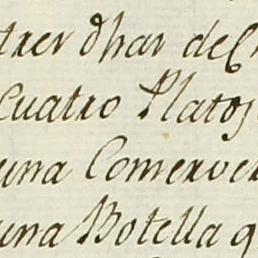 trer dhar de C
Cuatro Platos
una Comerver
una Botella q